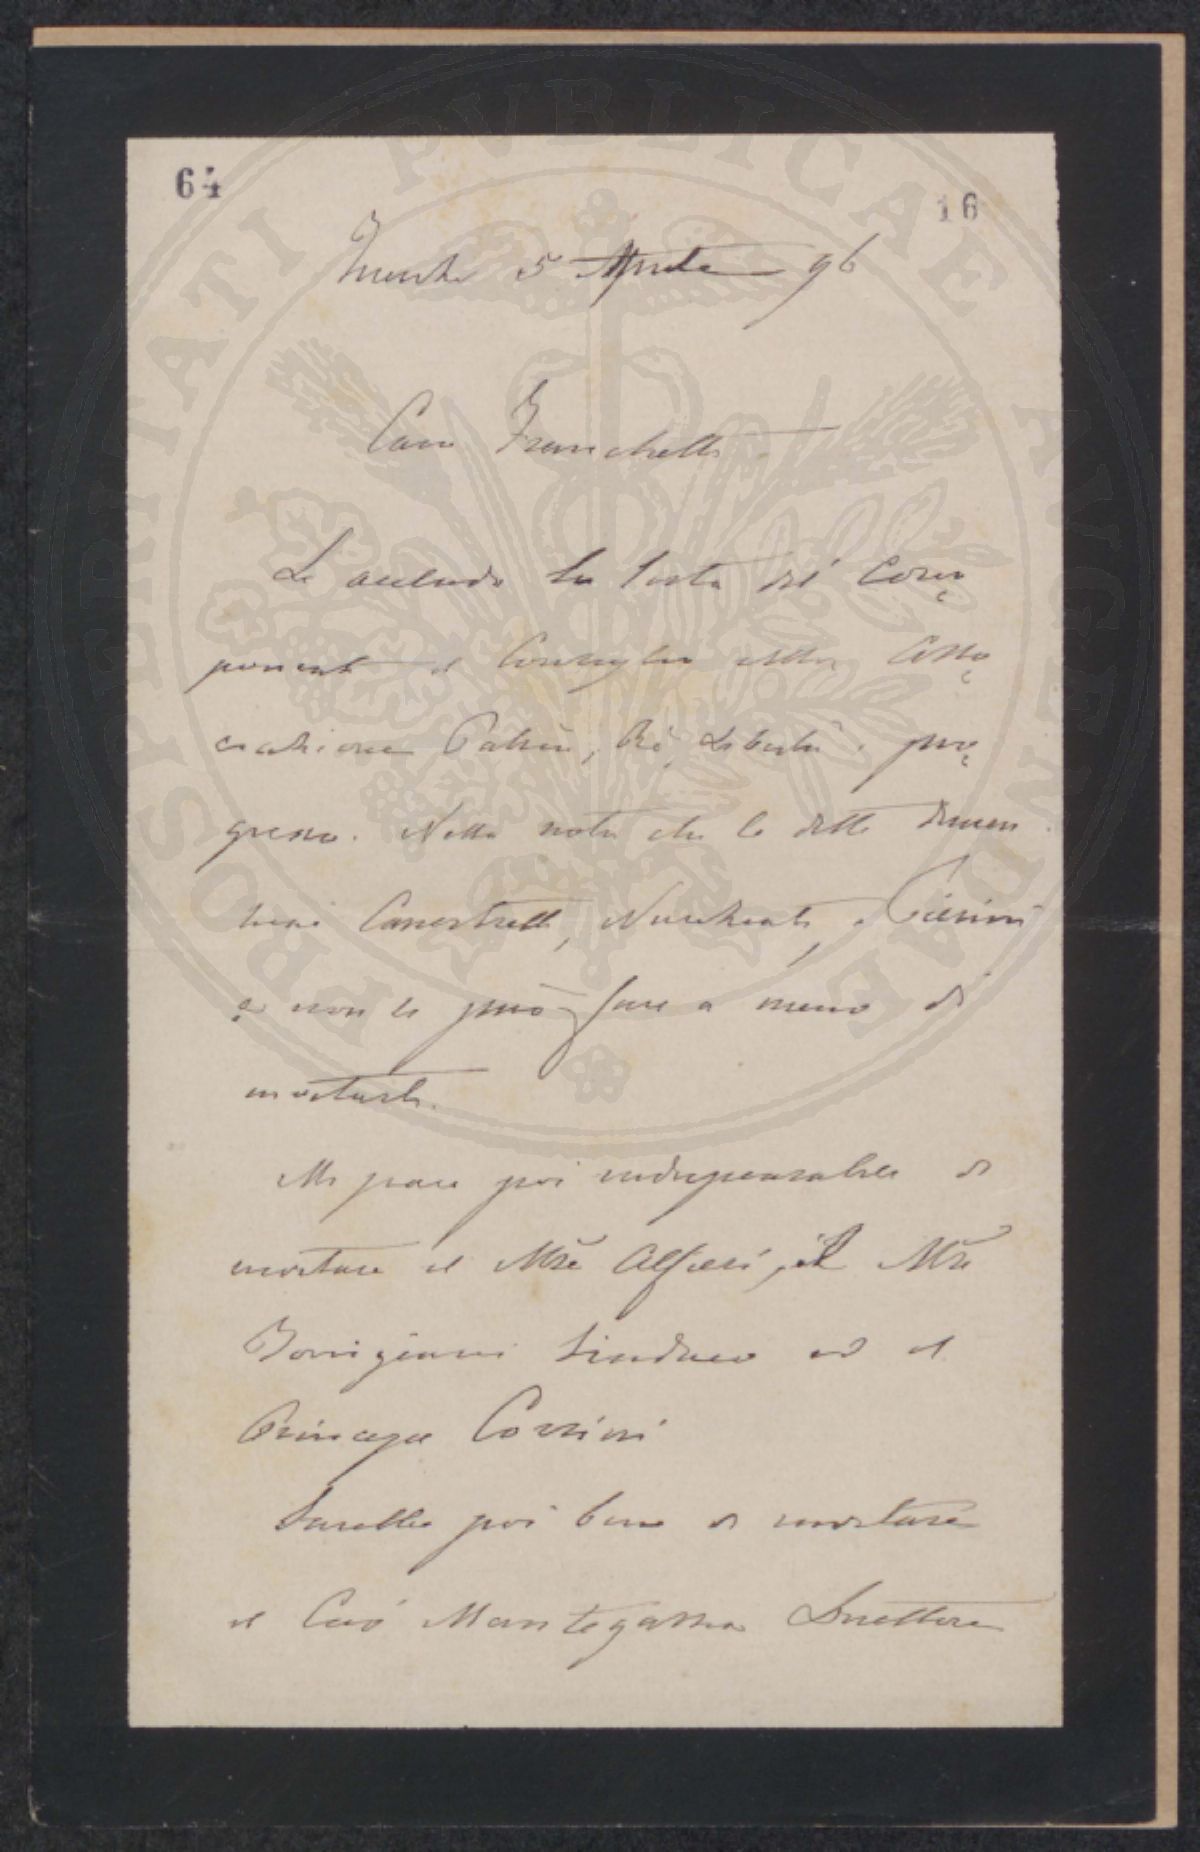 64
16
5 Aprile 96
Caro Franchetti
Le accludo la lista dei Com
ponenti il Consiglio della Asso
ciazione Patria, Re, Libertà e pro
gresso. Nella nota che le detti dimen
ticai Canestrelli, e
e non si può fare a meno di
invitarli.
Mi pare poi indispensabile di
invitare il Mse Alfieri, il Mse
Torrigiani Sindaco ed il
Principe Corsini
Sarebbe poi bene di invitare
il Mantegazza Direttore
PROSPERITATI PVBLICAE AVGENDAE